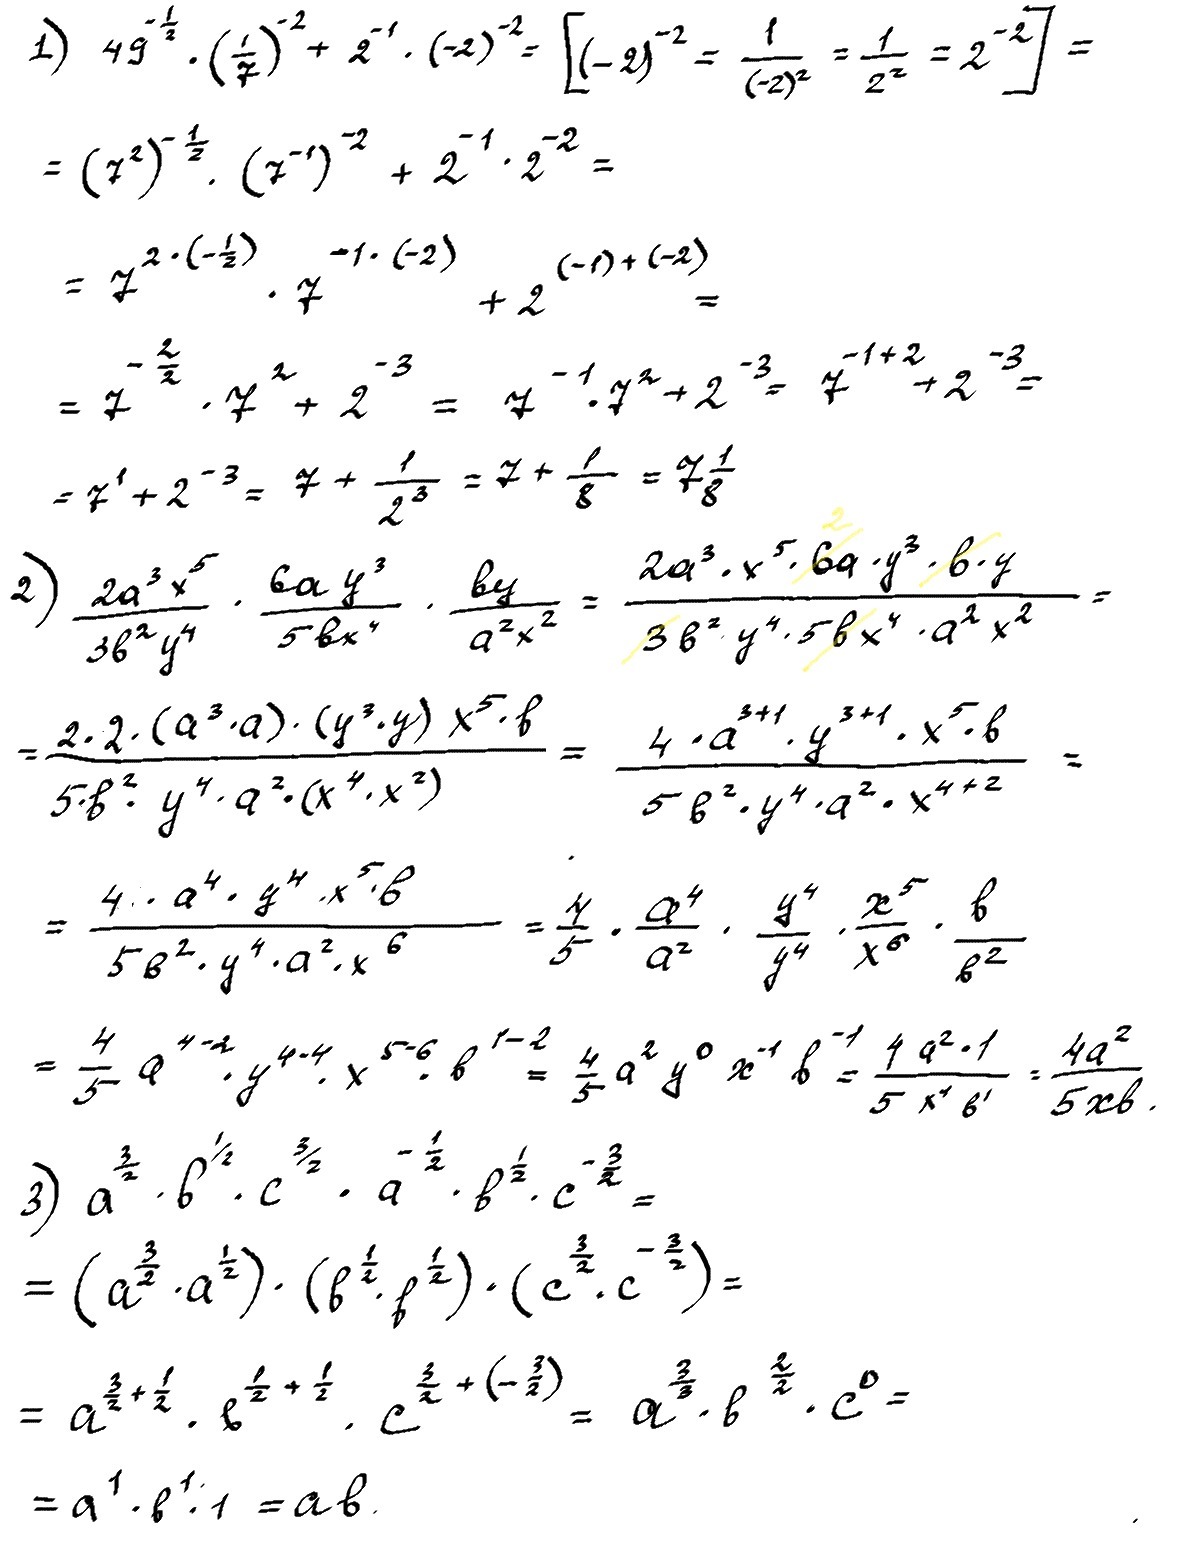 1) 49^{-1/2} · (1/7)^{-2} + 2^{-1} · (-2)^{-2} = [(-2)^{-2} = 1/(-2)^2 = 1/2^2 = 2^{-2}] =
= (7^2)^{-1/2} · (7^{-1})^{-2} + 2^{-1} · 2^{-2} =
= 7^{2·(-1/2)} · 7^{-1·(-2)} + 2^{(-1)+(-2)} =
= 7^{-2/2} · 7^2 + 2^{-3} = 7^{-1} · 7^2 + 2^{-3} = 7^{-1+2} + 2^{-3} =
= 7^1 + 2^{-3} = 7 + 1/2^3 = 7 + 1/8 = 7 1/8
2) (2a^3 x^5)/(3в^2 y^4) · (6a y^3)/(5вx^4) · (вy)/(a^2x^2) = (2a^3 · x^5 · 6a · y^3 · в · y)/(3в^2 · y^4 · 5вx^4 · a^2 x^2) = 2
= (2·2·(a^3·a)·(y^3·y) x^5·в)/(5·в^2· y^4·a^2·(x^4·x^2)) = (4·a^{3+1}·y^{3+1}·x^5·в)/(5в^2·y^4·a^2·x^{4+2}) =
= (4·a^4·y^4·x^5·в)/(5в^2·y^4·a^2·x^6) = 4/5 · a^4/a^2 · y^4/y^4 · x^5/x^6 · в/в^2
= 4/5 a^{4-2} · y^{4-4} · x^{5-6} · в^{1-2} = 4/5 a^2 y^0 x^{-1} в^{-1} = (4a^2·1)/(5 x^1 в^1) = 4a^2/5xв.
3) a^{3/2} · в^{1/2} · c^{3/2} · a^{-1/2} · в^{1/2} · c^{-3/2} =
= (a^{3/2} · a^{1/2}) · (в^{1/2} · в^{1/2}) · (c^{3/2} · c^{-3/2}) =
= a^{3/2+1/2} · в^{1/2+1/2} · c^{3/2+(-3/2)} = a^{3/3} · в^{2/2} · c^0 =
= a^1 · в^1 · 1 = aв.